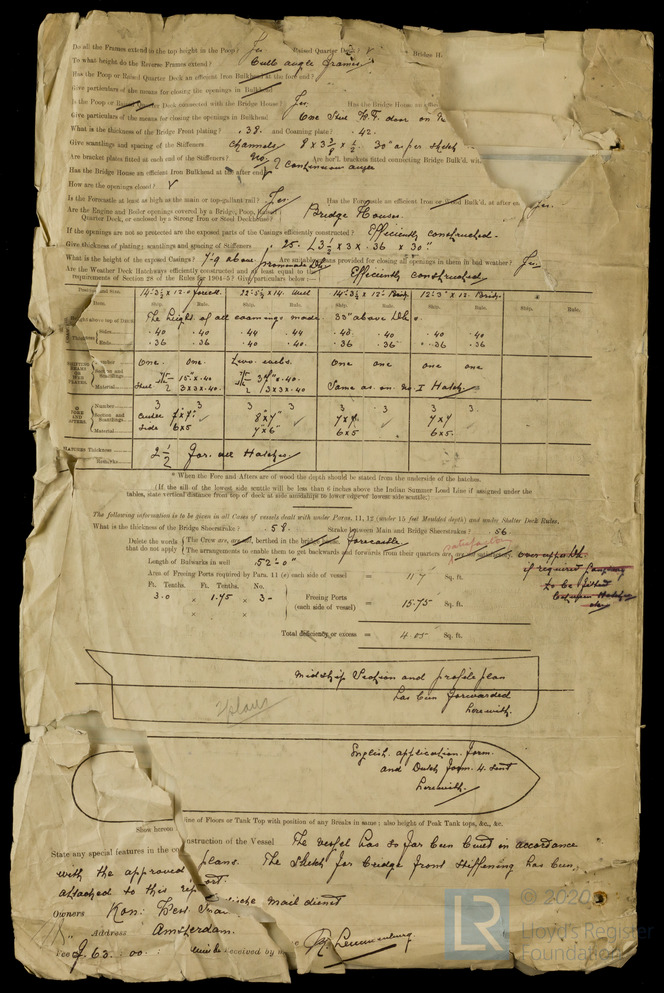 Do all the Frames extend to the top height in the Poop? Yes Raised Quarter Deck? Bridge H.
To what height do the Reverse Frames extend? Bulb angle frames
Has the Poop or Raised Quarter Deck an efficient Iron Bulkhead at the fore end?
Give particulars of the means for closing the openings in Bulkhead
Is the Poop or Raised Quarter Deck connected with the Bridge House? Yes Has the Bridge House an
Give particulars of the means for closing the openings in Bulkhead One Steel W.T. door on
What is the thickness of the Bridge Front plating? .38. and Coaming plate? .42.
Give scantlings and spacing of the Stiffeners channels 8 x 3 3/8 x 1/2. 30" as per sketch
Are bracket plates fitted each end of the Stiffeners? Are hor'l. brackets fitted connecting Bridge Bulk'd.
Has the Bridge House an efficient Iron Bulkhead at the after end? continuous angle
How are the openings closed?
Is the Forecastle at least as high as the main or top-gallant rail? Yes Has the Forecastle an efficient Iron or Wood Bulk'd. at after end Yes.
Are the Engine and Boiler openings covered by a Bridge, Poop, Raised Quarter Deck, or enclosed by a Strong Iron or Steel Deckhouse? Bridge House.
If the openings are not so protected are the exposed parts of the Casings efficiently constructed? Efficiently constructed.
Give thickness of plating; scantlings and spacing of Stiffeners .25. L3 1/2 x 3 x .36 x 30"
What is the height of the exposed Casings? 7-9 above promenade Dk. Are suitable means provided for closing all openings in them in bad weather? Yes
Are the Weather Deck Hatchways efficiently constructed and at least equal to the
requirements of Section 28 of the Rules for 1904-5? Give particulars below:— Efficiently constructed
Position and Size. 14'-3 1/2 x 12. 22'-5 1/2 x 14. Well 14'-3 1/2 x 12' Bridge 12'-3" x 12. Bridge.
Item. Ship. Rule. Ship. Rule. Ship. Rule. Ship. Rule.
Height above top of Deck The height of all coamings made 33" above Dk.
Thickness Sides .40 .40 .44 .44 .48. .40 .40 .40
Ends .36 .36 .40 .40 .36 .36 .36 .36
Number One. one. Two. each. One one one one
Section and Scantlings
Material Steel 3x3x.40. 3x3x.40 Same as on No I Hatch.
Number 3 3 3 3 3 3 3
Section and Scantlings Center 7x7" 8x7" 7x7 7x7
Material Side 6x5 7x6" 6x5 6x5.
HATCHES Thickness 2 1/2 for all Hatches
Remarks
* When the Fore and Afters are of wood the depth should be stated from the underside of the hatches.
(If the sill of the lowest side scuttle will be less than 6 inches above the Indian Summer Load Line if assigned under the
tables, state vertical distance from top of deck at side amidships to lower edge of lowest side scuttle;)
The following information is to be given in all Cases of vessels dealt with under Paras. 11, 12 (under 15 feet Moulded depth) and under Shelter Deck Rules.
What is the thickness of the Bridge Sheerstrake? .58. Strake between Main and Bridge Sheerstrakes? .56.
Delete the words that do not apply The Crew are, are not, berthed in the bridge Forecastle.
The arrangements to enable them to get backwards and forwards from their quarters are satisfactory
if required
to be fitted
between Hatches
Length of Bulwarks in well 52'-0"
Area of Freeing Ports required by Para. 11 (e) each side of vessel = 11.7 Sq. ft.
Ft. Tenths. Ft. Tenths. No.
3.0 x 1.75 x 3 Freeing Ports (each side of vessel) = 15.75 Sq. ft.
x x
Total deficiency or excess = 4.05 Sq. ft.
Midship Section and profile plan
has been forwarded
herewith.
2 plans
English application form
and Dutch form 4 sent
herewith.
Show hereon line of Floors or Tank Top with position of any Breaks in same; also height of Peak Tank tops, &c., &c.
State any special features in the construction of the Vessel The vessel has so far been built in accordance
with the approved plans. The sketch for bridge front stiffening has been
attached to this report.
Owners Kon: West Indische Mail dienst
Address Amsterdam.
Fee f. 63.00: received by me
© 2020
LR
Lloyd's Register
Foundation